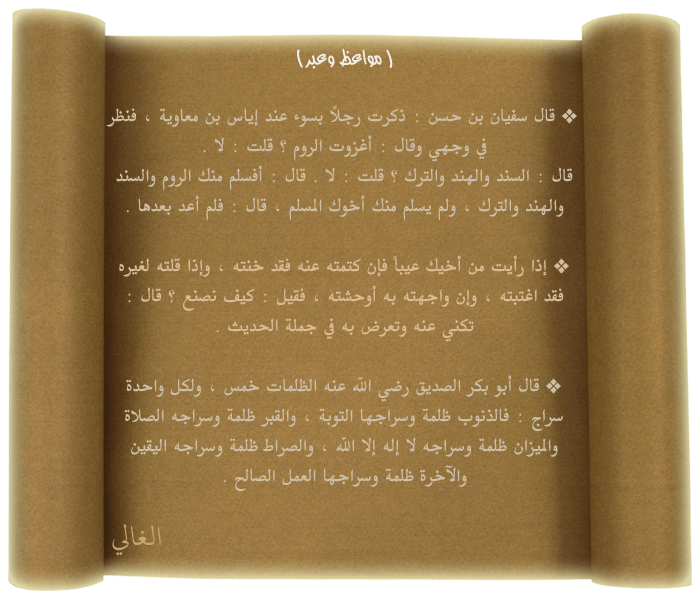 ( مواعظ وعبر )
❖ قال سفيان بن حسن : ذكرت رجلاً بسوء عند إياس بن معاوية ، فنظر
في وجهي وقال : أغزوت الروم ؟ قلت : لا .
قال : السند والهند والترك ؟ قلت : لا . قال : أفسلم منك الروم والسند
والهند والترك ، ولم يسلم منك أخوك المسلم ، قال : فلم أعد بعدها .
❖ إذا رأيت من أخيك عيباً فإن كتمته عنه فقد خنته ، وإذا قلته لغيره
فقد اغتبته ، وإن واجهته به أوحشته ، فقيل : كيف نصنع ؟ قال :
تكني عنه وتعرض به في جملة الحديث .
❖ قال أبو بكر الصديق رضي الله عنه الظلمات خمس ، ولكل واحدة
سراج : فالذنوب ظلمة وسراجها التوبة ، والقبر ظلمة وسراجه الصلاة
والميزان ظلمة وسراجه لا إله إلا الله ، والصراط ظلمة وسراجه اليقين
والآخرة ظلمة وسراجها العمل الصالح .
الغالي